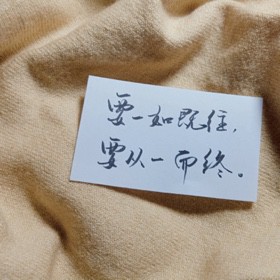 要一如既往,
要从一而终。